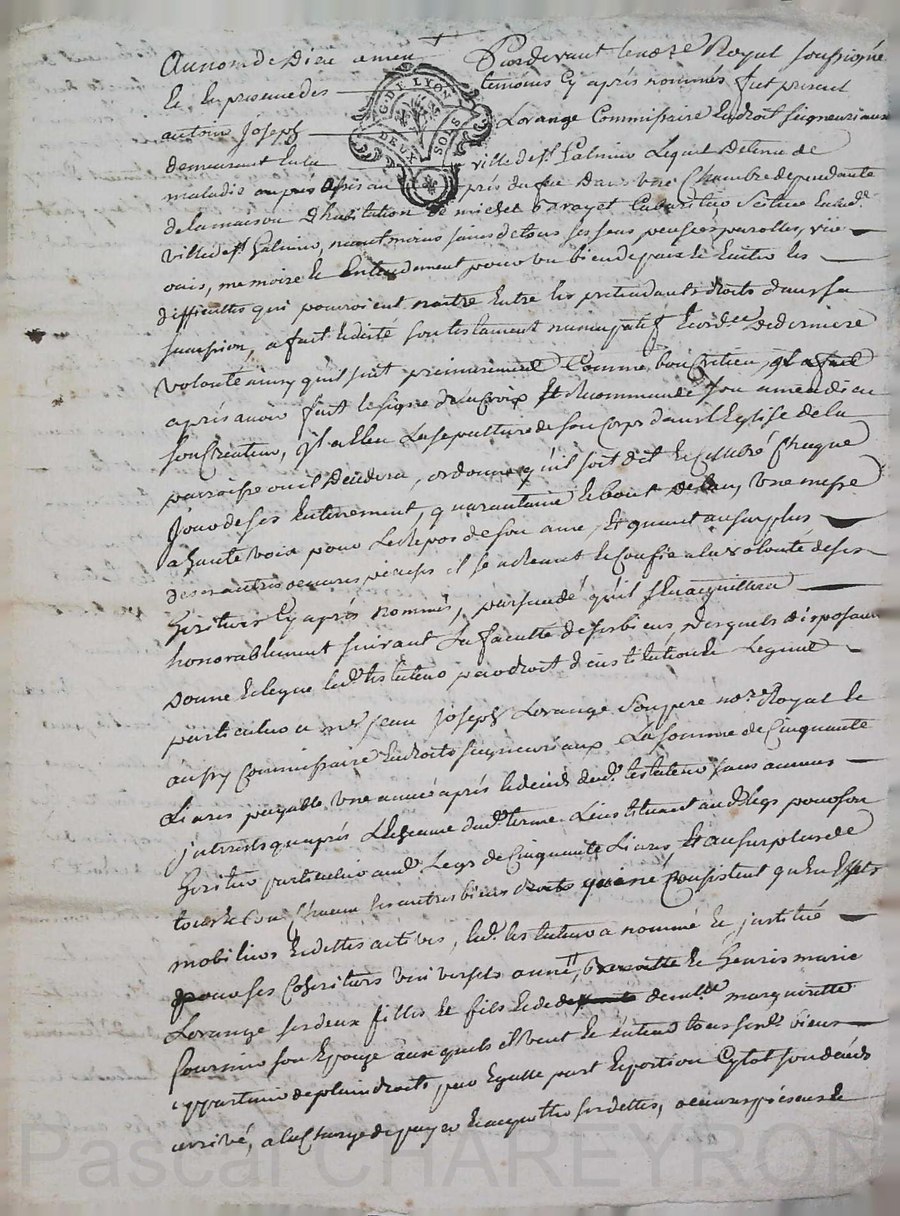 Au nom de Dieu amen † Pardevant le no.re Royal soussigné
et en presence des temoins cy après nommés fut present
G. DE LYON
DEUX SOLS
autour Joseph Lorange Commissaire En droit seigneuriaux
demeurant en la ville de s.t Galmier Lequel detenu de
maladie au près du feu Dans une Chambre dependante
de la maison D'habitation de michel Cabartier scitue en lad.e
ville de s.t Galmier, neantmoins sain de tous ses sens pensées parolles, vüe
ouïe, memoire Et Entendement pour ou bien depart Et Eviter les
difficultes qui pouroient naitre Entre les pretendants droits dans sa
sucession, a fait Et dicté son testament nuncupatif Et ord.ce De derniere
volonté ainsy quil suit premierement Comme bon Chretien
après avoir fait le signe de la Croix Et Recommandé son ame a dieu
son Createur, Il a Elleu La sepulture de son Corps dans l'Eglise de la
parroisse ou il Decedera, ordonne qu'il soit dit Et Celebré Chaque
Jour de ses Enterrement, quarantaine Et bout De l'an, Une messe
a haute voix pour Le Repos de son ame, Et quant au surplus
des autres œuvres pieuses il se Confie a la volonté de ses
heritiers Cy après nommés, persuadé qu'il s'En acquittera
honorablement suivant La faculté de ses biens, Desquels disposant
Donne Et legue led.t testateur par droit d'institution Et Legat
particulier a m.re Jean Joseph Lorange son pere no.re Royal Et
aussy Commissaire En droits seigneuriaux La somme de Cinquante
Livres payable Une année après le deces dud.t testateur sans aucuns
interests qu'après L'Echeance dud.t terme L'instituant aud.t legs pour son
heritier particulier aud.t Legs de Cinquante Livres Et au surplus de
tous Et Un Chacun ses autres biens droits qui ne Consistent qu'en Effets
mobiliers Et dettes actives, led.t testateur a nommé Et institué
pour ses Coheritiers universels anne, Et henris marie
Lorange ses deux filles Et fils Et de dem.lle margueritte
son Epouze auxquels il veut Et entend tous sesd.ts biens
appartenir de plein droits, par Egalle part Et portion Cytot son deceds
arrivé, a la Charge de payer Et acquitter ses dettes, œuvres pieuses Et
Pascal CHAREYRON